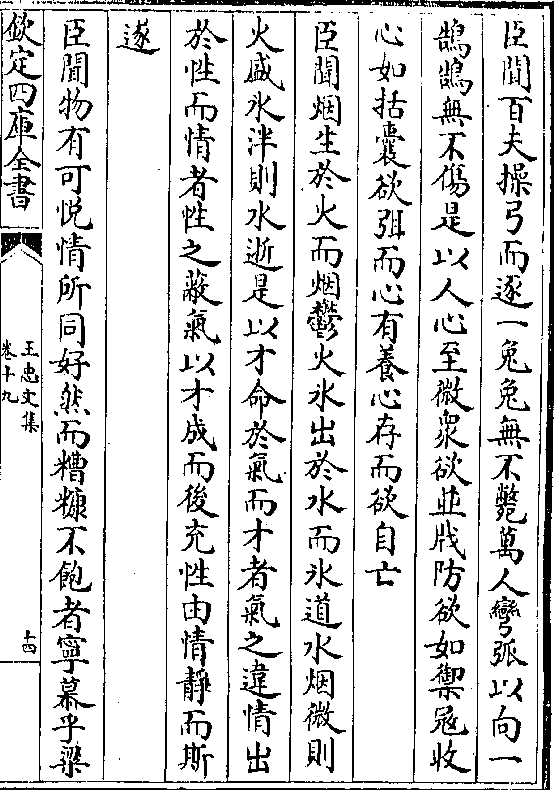 臣聞百夫操弓而逐一兔兔無不斃萬人彎弧以向一
鵠鵠無不傷是以人心至微衆欲並戕防欲如禦冦收
心如括囊欲弭而心有養心存而欲自亡
臣聞烟生於火而烟鬱火氷出於水而氷遒水烟微則
火盛氷泮則水逝是以才命於氣而才者氣之違情出
於性而情者性之蔽氣以才成而後充性由情靜而斯
遂
臣聞物有可悦情所同好然而糟糠不飽者寧慕乎粱
欽定四庫全書
王忠文集
卷十九
十四